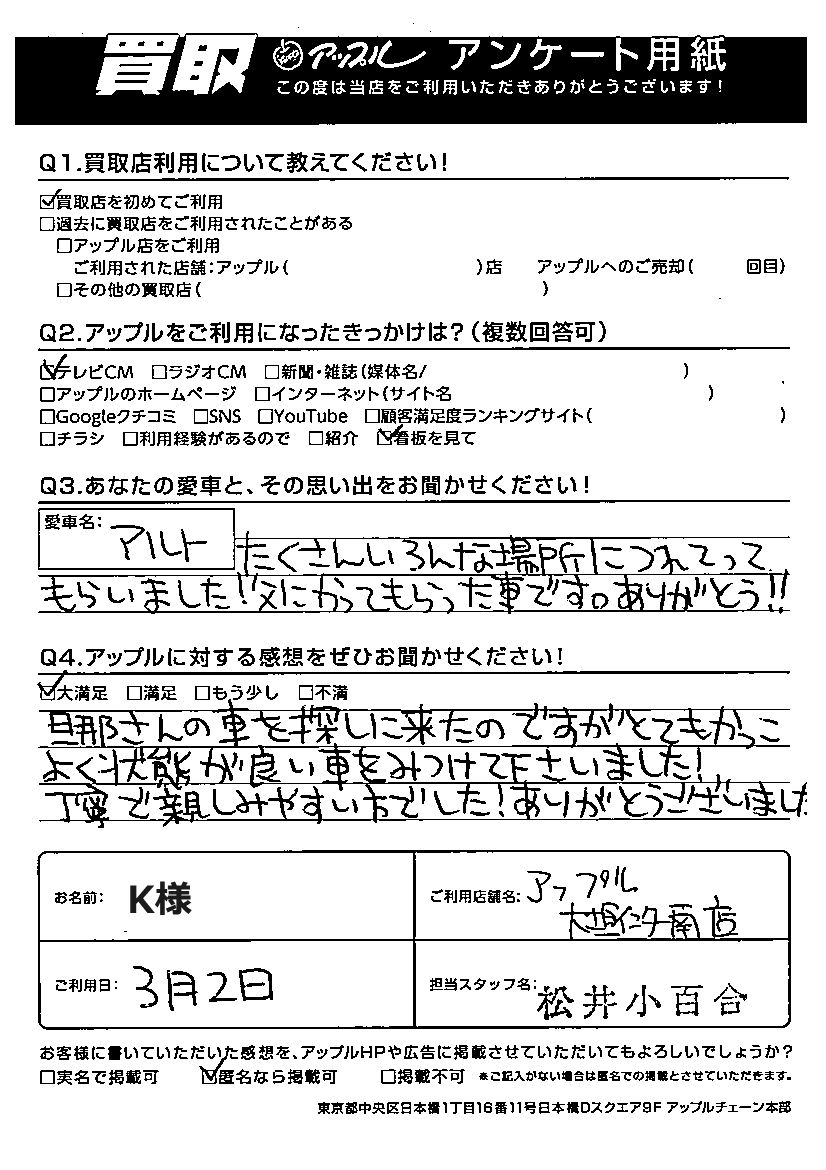 買取 アップル アンケート用紙
この度は当店をご利用いただきありがとうございます!
Q1.買取店利用について教えてください!
☑買取店を初めてご利用
□過去に買取店をご利用されたことがある
□アップル店をご利用
ご利用された店舗:アップル( )店 アップルへのご売却( 回目)
□その他の買取店( )
Q2.アップルをご利用になったきっかけは?(複数回答可)
☑テレビCM □ラジオCM □新聞・雑誌(媒体名/ )
□アップルのホームページ □インターネット(サイト名 )
□Googleクチコミ □SNS □YouTube □顧客満足度ランキングサイト( )
□チラシ □利用経験があるので □紹介 ☑看板を見て
Q3.あなたの愛車と、その思い出をお聞かせください!
愛車名: アルト たくさんいろんな場所につれてって
もらいました!!父にかってもらった車です。ありがとう!!
Q4.アップルに対する感想をぜひお聞かせください!
☑大満足 □満足 □もう少し □不満
旦那さんの車を探しに来たのですがとてもかっこ
よく状態が良い車をみつけて下さいました!
丁寧で親しみやすい方でした!ありがとうございました
お名前: K様 ご利用店舗名: アップル
大垣インター南店
ご利用日: 3月2日 担当スタッフ名: 松井小百合
お客様に書いていただいた感想を、アップルHPや広告に掲載させていただいてもよろしいでしょうか?
□実名で掲載可 ☑匿名なら掲載可 □掲載不可 ※ご記入がない場合は匿名での掲載とさせていただきます。
東京都中央区日本橋1丁目16番11号日本橋Dスクエア9F アップルチェーン本部